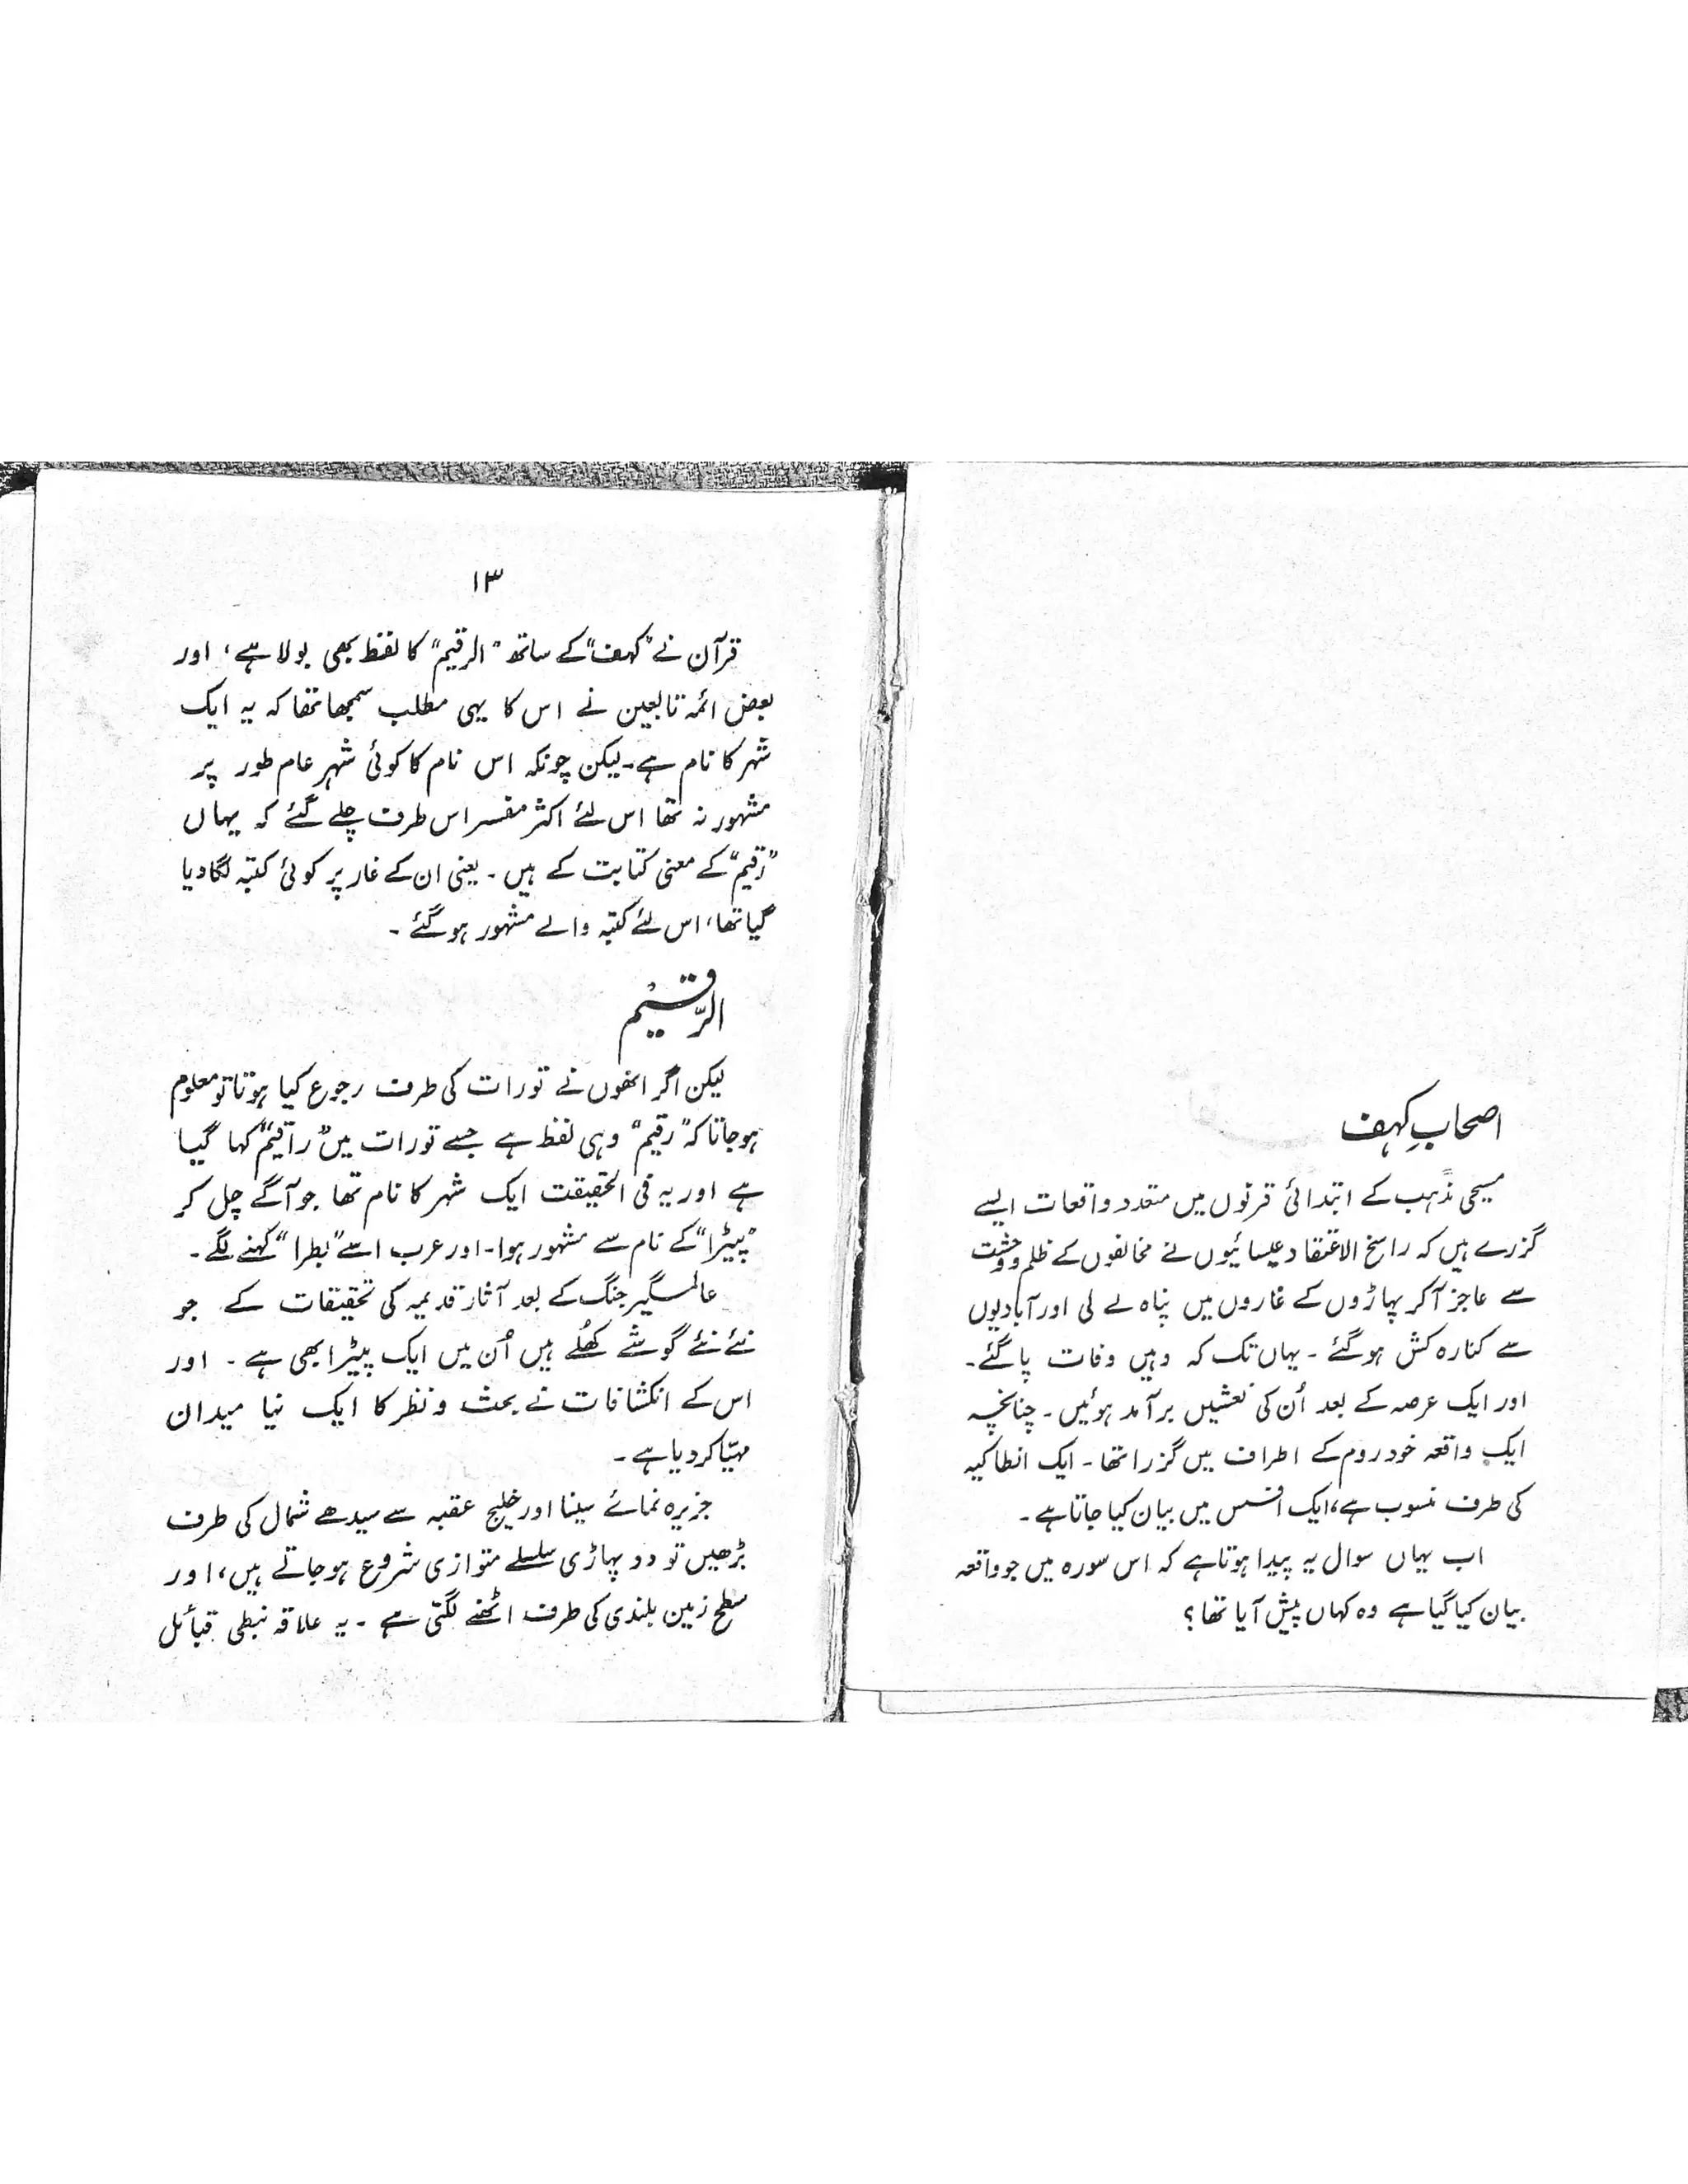 اصحابِ کہف
مسیحی مذہب کے ابتدائی قرنوں میں متعدد واقعات ایسے
گزرے ہیں کہ راسخ الاعتقاد عیسائیوں نے مخالفوں کے ظلم و وحشت
سے عاجز آکر پہاڑوں کے غاروں میں پناہ لے لی اور آبادیوں
سے کنارہ کش ہوگئے ۔ یہاں تک کہ وہیں وفات پاگئے۔
اور ایک عرصہ کے بعد اُن کی نعشیں برآمد ہوئیں ۔ چنانچہ
ایک واقعہ خود روم کے اطراف میں گزرا تھا ۔ ایک انطاکیہ
کی طرف منسوب ہے، ایک افسس میں بیان کیا جاتا ہے ۔
اب یہاں سوال یہ پیدا ہوتا ہے کہ اس سورہ میں جو واقعہ
بیان کیا گیا ہے وہ کہاں پیش آیا تھا ؟
۱۳
قرآن نے "کہف" کے ساتھ "الرقیم" کا لفظ بھی بولا ہے، اور
بعض ائمہ تابعین نے اس کا یہی مطلب سمجھا تھا کہ یہ ایک
شہر کا نام ہے۔ لیکن چونکہ اس نام کا کوئی شہر عام طور پر
مشہور نہ تھا اس لئے اکثر مفسر اس طرف چلے گئے کہ یہاں
"رقیم" کے معنی کتابت کے ہیں ۔ یعنی ان کے غار پر کوئی کتبہ لگا دیا
گیا تھا، اس لئے کتبہ والے مشہور ہوگئے ۔
الرَّقِیْم
لیکن اگر انھوں نے تورات کی طرف رجوع کیا ہوتا تو معلوم
ہوجاتا کہ "رقیم" وہی لفظ ہے جسے تورات میں "راقیم" کہا گیا
ہے اور یہ فی الحقیقت ایک شہر کا نام تھا جو آگے چل کر
"پیٹرا" کے نام سے مشہور ہوا۔ اور عرب اسے "بطرا" کہنے لگے ۔
عالمگیر جنگ کے بعد آثار قدیمہ کی تحقیقات کے جو
نئے نئے گوشے کھُلے ہیں اُن میں ایک پیٹرا بھی ہے ۔ اور
اس کے انکشافات نے بحث و نظر کا ایک نیا میدان
مہیّا کردیا ہے ۔
جزیرہ نمائے سینا اور خلیج عقبہ سے سیدھے شمال کی طرف
بڑھیں تو دو پہاڑی سلسلے متوازی شروع ہوجاتے ہیں، اور
سطح زمین بلندی کی طرف اٹھنے لگتی ہے ۔ یہ علاقہ نبطی قبائل